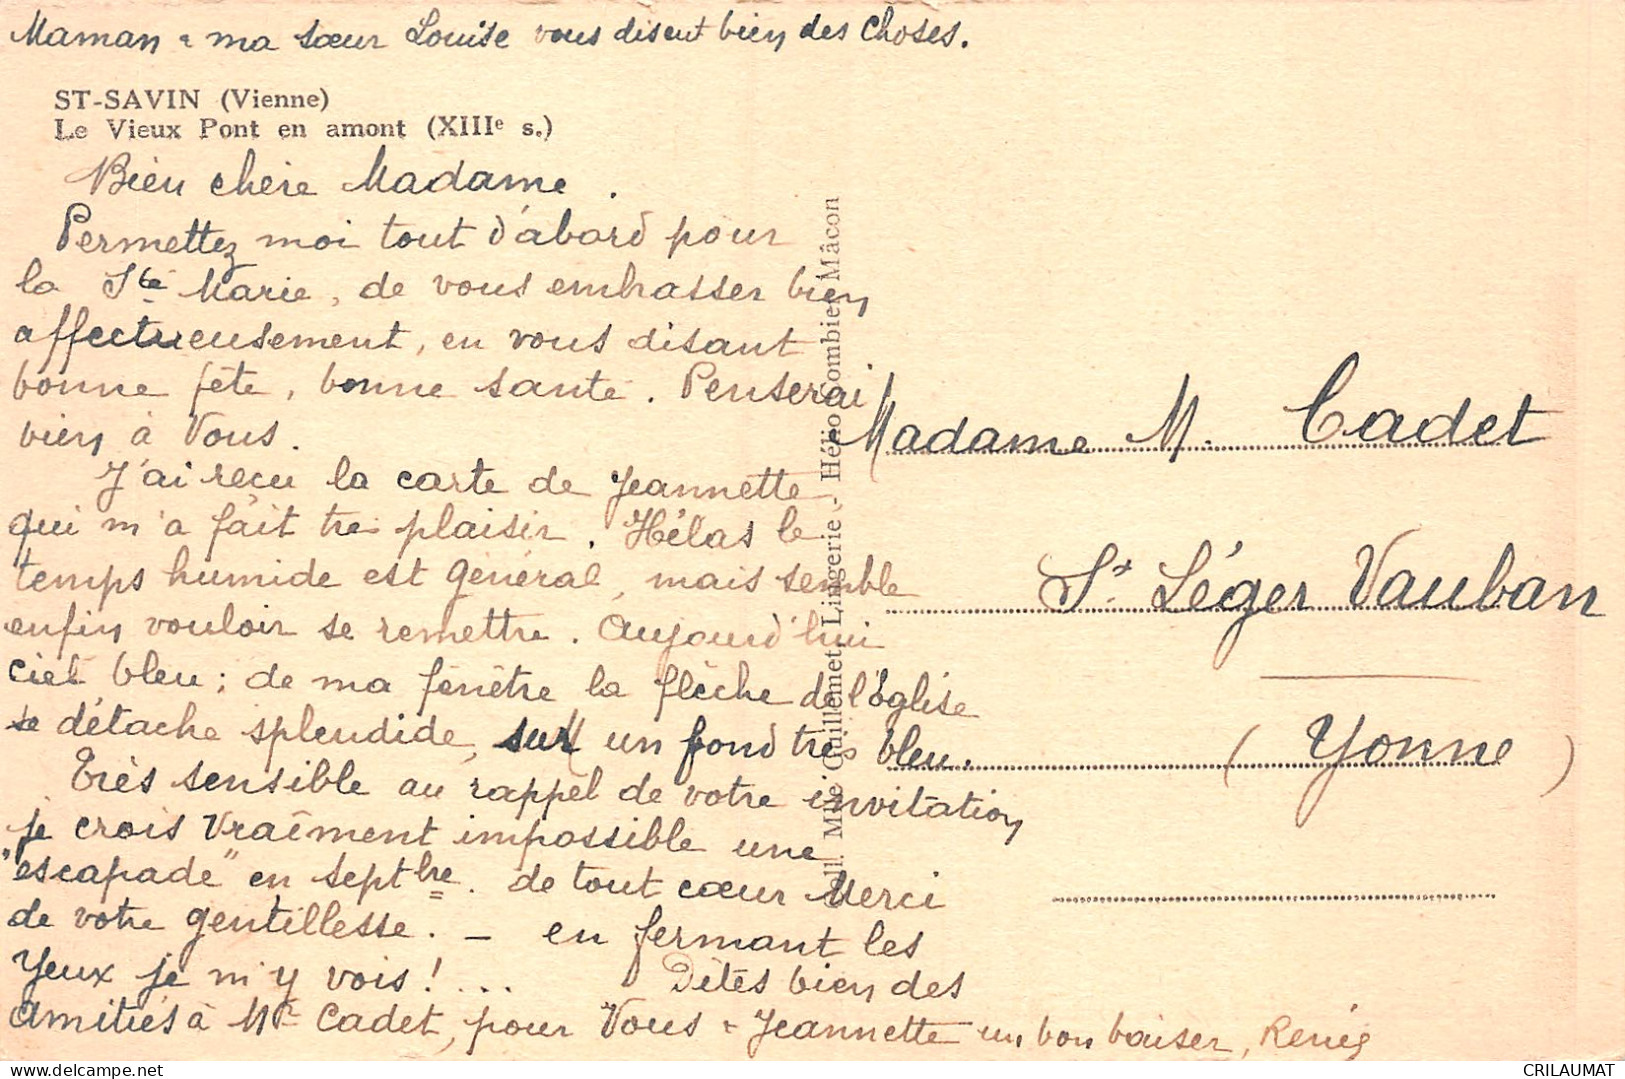 Maman = ma sœur Louise vous disent bien des Choses.
ST-SAVIN (Vienne)
Le Vieux Pont en amont (XIIIe s.)
Bien chère Madame.
Permettez moi tout d'abord pour
la Ste Marie, de vous embrasser bien
affectueusement, en vous disant
bonne fête, bonne santé. Penserai
bien à Vous.
J'ai reçu la carte de Jeannette
qui m'a fait très plaisir. Hélas le
temps humide est général, mais semble
enfin vouloir se remettre. Aujourd'hui
ciel bleu; de ma fenêtre la flèche de l'Eglise
se détache splendide, sur un fond très bleu.
Très sensible au rappel de votre invitation
je crois vraiment impossible une
"escapade" en Septbre. de tout cœur Merci
de votre gentillesse. - en fermant les
Yeux je m'y vois!... Dites bien des
amitiés à Mr Cadet, pour Vous = Jeannette un bon baiser, Renée
Coll. Mme Guillemet, Lingerie - Hélio Combier Mâcon
Madame M. Cadet
St Léger Vauban
(Yonne)
CRILAUMAT